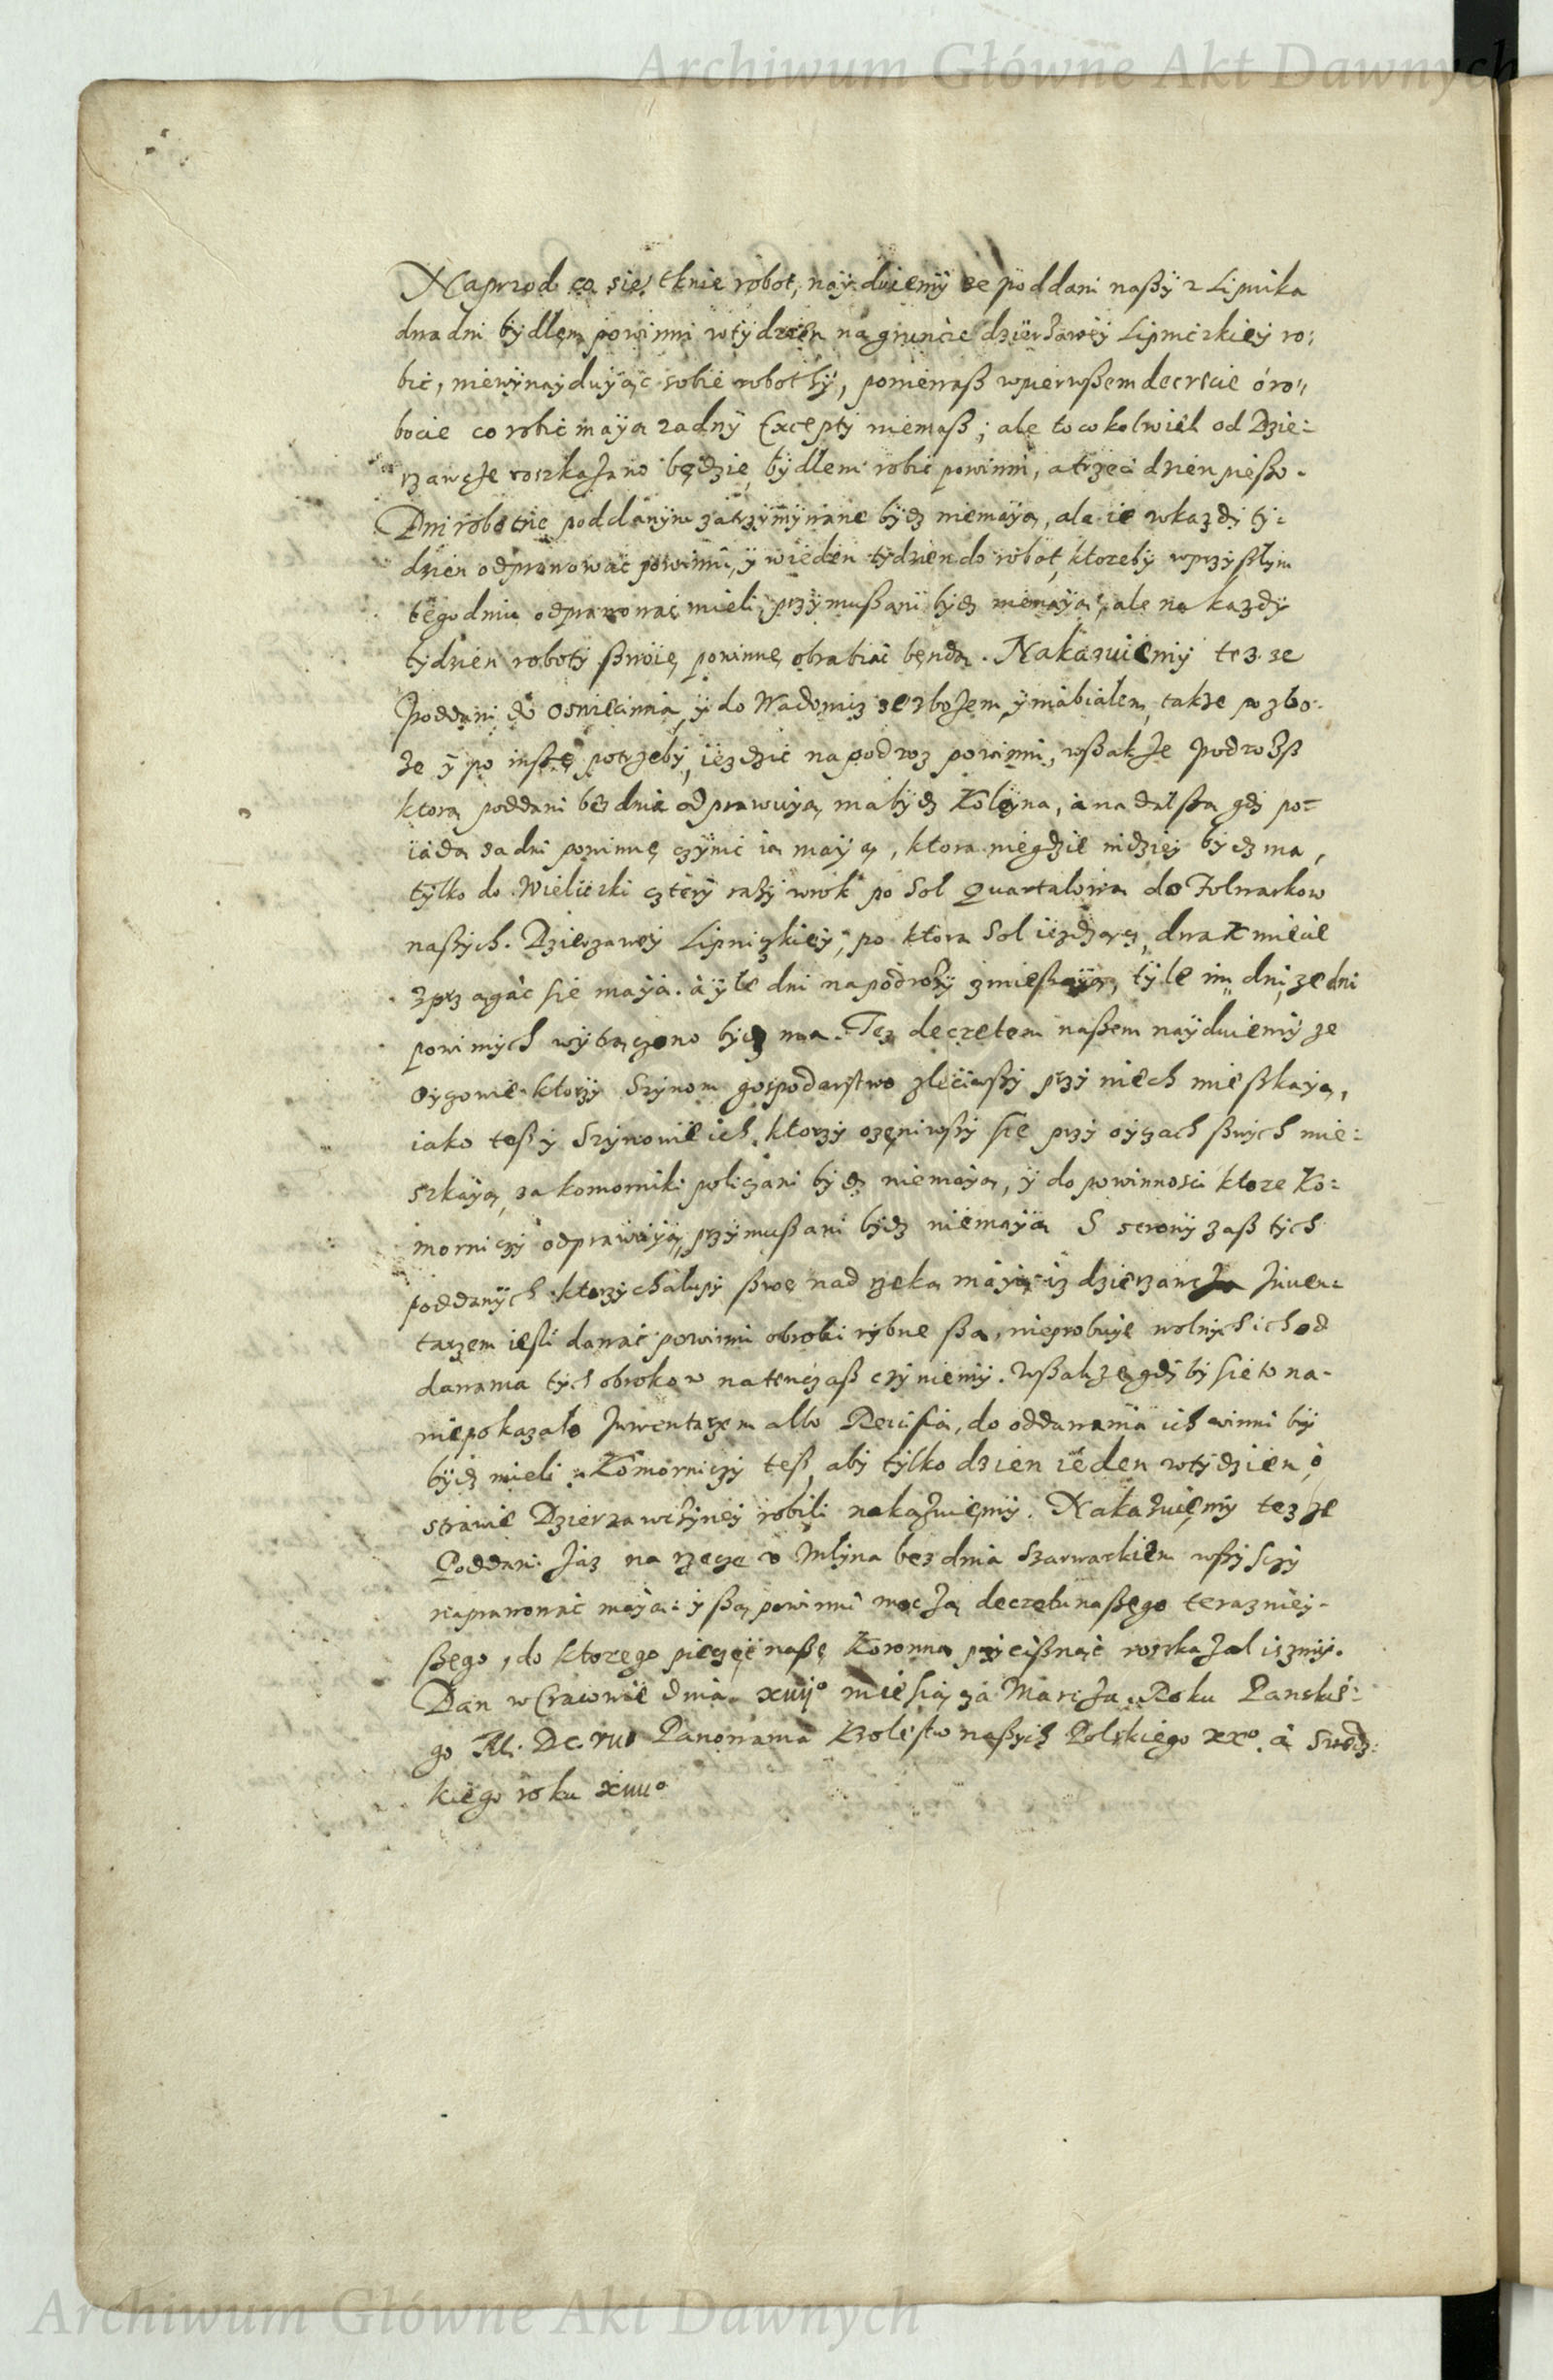 Archiwum Główne Akt Dawnych
Naprzod co się tknie robot, naÿduiemÿ ze poddani naßÿ z Lipnika
dwa dni bÿdłem powinni w tÿdzien na gruncie dzierżawÿ Lipnickieÿ ro:
bic, niewÿnaÿduÿąc sobie robothÿ, poniewaß w pierwßem decrecie o ro:
bocie co robic maÿą zadnÿ Exceptÿ niemaß; ale to cokolwiek od Dzie:
rzawce roszkazano będzie, bÿdłem robic powinni, a trzeci dzien pießo.
Dni robotne poddanÿm zatrzÿmÿwane bÿdz niemaÿą, ale ie w kazdÿ tÿ:
dzien odprawowac powinni, ÿ w ieden tÿdzien do robot, ktorebÿ w przÿßłÿm
tÿgodniu odprawowac mieli przÿmußani bÿdz niemaÿą, ale na kazdÿ
tÿdzien robotÿ ßwoie powinne obrabiac będą. Nakazuiemÿ tez ze
Poddani do Oswiecimia, ÿ do Wadowic ze zbozem ÿ nabiałem, takze po zbo:
ze ÿ po inße potrzebÿ, iezdzic na podwoz powinni, wßakze Podrozß
ktorą poddani bez dnia odprawuÿą ma bÿdz Koleÿna, a na dalßą gdÿ po:
iadą za dni powinne czÿnic ią maÿą, ktora niegdzie indzieÿ bÿdz ma,
tÿlko do Wieliczki czterÿ razÿ w rok po Sol Quartalową do Folwarkow
naßÿch Dzierzawÿ Lipnickieÿ, po ktorą Sol iezdzącÿ, dwa Kmiecie
zprzagac sie maÿą. a ÿle dni na podrozÿ zmießkaÿą, tÿle im dni ze dni
powinnÿch wÿtrączono bÿdz ma. Tez decretem naßem naÿduiemÿ ze
oÿcowie ktorzÿ Sÿnom gospodarstwo zleciwßÿ przÿ niech mießkaÿą,
iako teß ÿ Sÿnowie ich, ktorzÿ ozeniwßÿ sie przÿ oÿcach ßwÿch mie:
szkaÿą, za komorniki policzani bÿdz niemaÿą, ÿ do powinnosci ktore Ko:
mornicÿ odprawuÿą, przÿmußani bÿdz niemaÿą S stronÿ zaß tÿch
poddanÿch ktorzÿ chałupÿ ßwe nad rzeką maÿą iz dzierzawca Inuen:
tarzem iesli dawac powinni obroki rÿbne ßą, nieprobuÿe wolnÿch ich od
dawania tÿch obrokow na tenczaß czÿniemÿ. Wßakze gdÿbÿ sie to na:
niepokazało Inwentarzem albo Rewisią, do oddawania ich winni bÿ
bÿdz mieli. Komornicÿ teß, abÿ tÿlko dzien ieden w tÿdzien o
strawie Dzierzawczÿneÿ robili nakazuiemÿ. Nakazuiemÿ tez ze
Poddani Jaz na rzece v Młÿna bez dnia Szarwarkiem wßÿscÿ
naprawowac maÿą ÿ ßą powinni mocą decretu naßego teraznieÿ:
ßego, do ktorego pieczęc naßę Koronną przÿcißnąc roskazalismÿ.
Dan w Cracowie dnia xuii° miesiąca Marca Roku Panskie:
go M. DC. VII° Panowania Krolestw naßÿch Polskiego xx°. a Swedz:
kiego roku xiiii°
Archiwum Główne Akt Dawnych